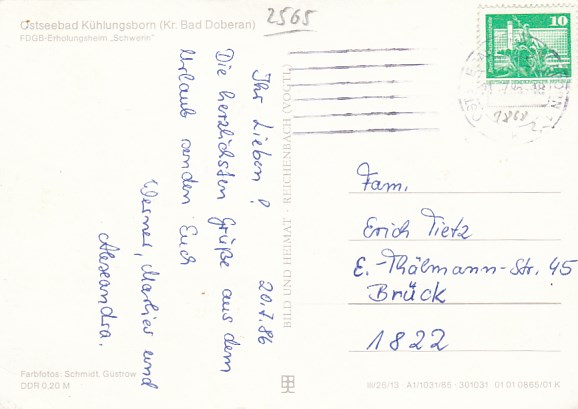 Ostseebad Kühlungsborn (Kr. Bad Doberan)
FDGB-Erholungsheim „Schwerin"
2565
10
20.7.86
Ihr Lieben!
Die herzlichsten Grüße aus dem
Urlaub senden Euch
Werner, Marlies und
Alexandra.
BILD UND HEIMAT · REICHENBACH (VOGTL)
Fam.
Erich Tietz
E.-Thälmann-Str. 45
Brück
1822
Farbfotos: Schmidt, Güstrow
DDR 0,20 M
III/26/13 · A1/1031/85 · 301031 01 01 0865/01 K